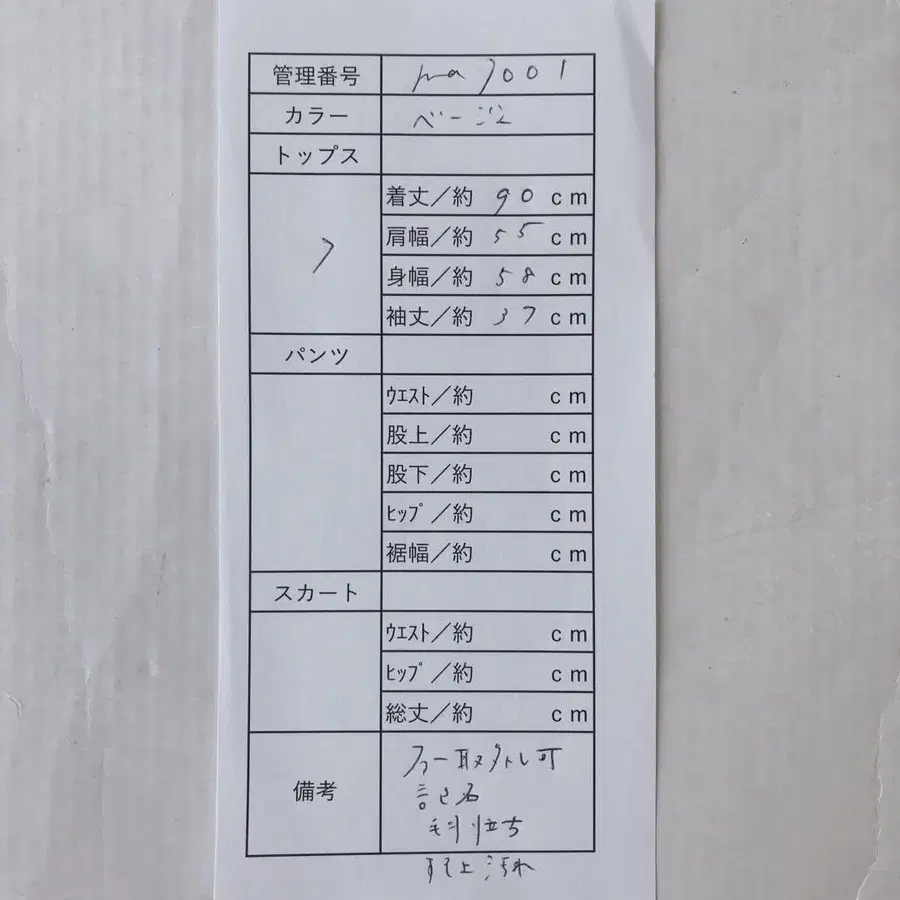 管理番号 ma7001
カラー ベージュ
トップス
7
着丈／約 90 cm
肩幅／約 55 cm
身幅／約 58 cm
袖丈／約 37 cm
パンツ
ｳｴｽﾄ／約 cm
股上／約 cm
股下／約 cm
ﾋｯﾌﾟ／約 cm
裾幅／約 cm
スカート
ｳｴｽﾄ／約 cm
ﾋｯﾌﾟ／約 cm
総丈／約 cm
備考
ファー取外し可
記名
毛羽立ち
すそ上汚れ